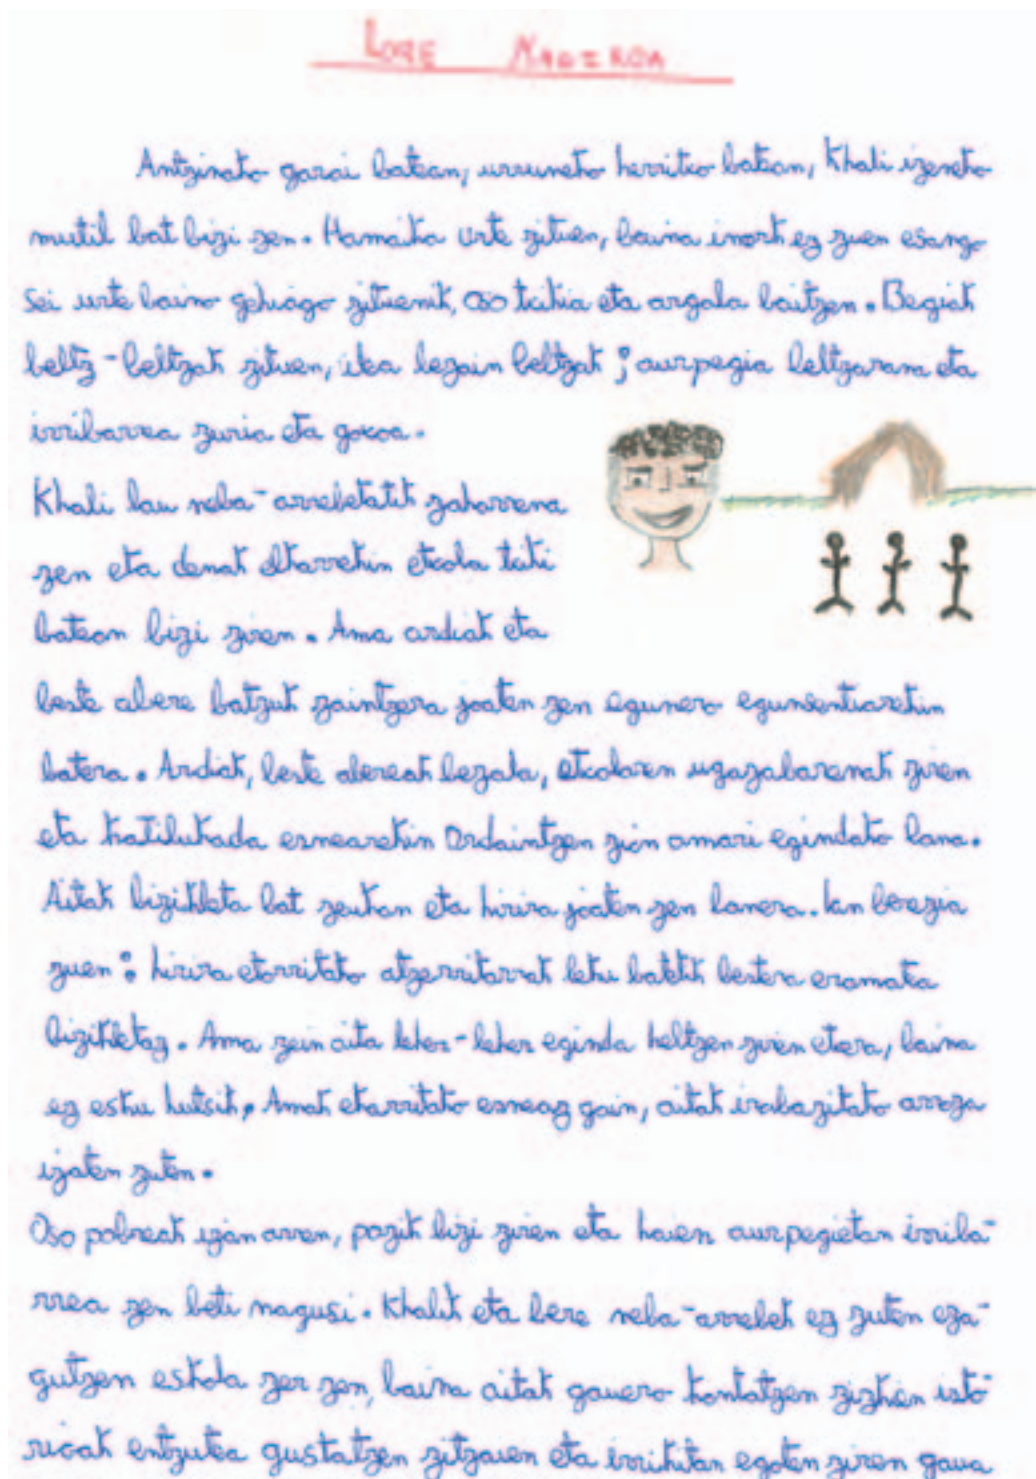 LORE MAGIKOA
Antzinako garai batean, urruneko herritxo batean, Khali izeneko
mutil bat bizi zen. Hamaika urte zituen, baina inork ez zuen esango
sei urte baino gehiago zituenik, oso txikia eta argala baitzen. Begiak
beltz-beltzak zituen, ilea bezain beltzak; aurpegia beltzarana eta
irribarrea zuria eta goxoa.
Khali lau neba-arrebetatik zaharrena
zen eta denak elkarrekin etxola txiki
batean bizi ziren. Ama ardiak eta
beste abere batzuk zaintzera joaten zen egunero egunsentiarekin
batera. Ardiak, beste abereak bezala, etxolaren ugazabarenak ziren
eta katilukada esnearekin ordaintzen zion amari egindako lana.
Aitak bizikleta bat zeukan eta hirira joaten zen lanera. lan berezia
zuen: hirira etorritako atzerritarrak leku batetik bestera eramatea
bizikletaz. Ama zein aita leher-leher eginda heltzen ziren etxera, baina
ez esku hutsik. Amak ekarritako esneaz gain, aitak irabazitako arroza
izaten zuten.
Oso pobreak izan arren, pozik bizi ziren eta haien aurpegietan irriba-
rrea zen beti nagusi. Khalik eta bere neba-arrebek ez zuten eza-
gutzen eskola zer zen, baina aitak gauero kontatzen zizkien isto-
rioak entzutea gustatzen zitzaien eta irrikitan egoten ziren gaua